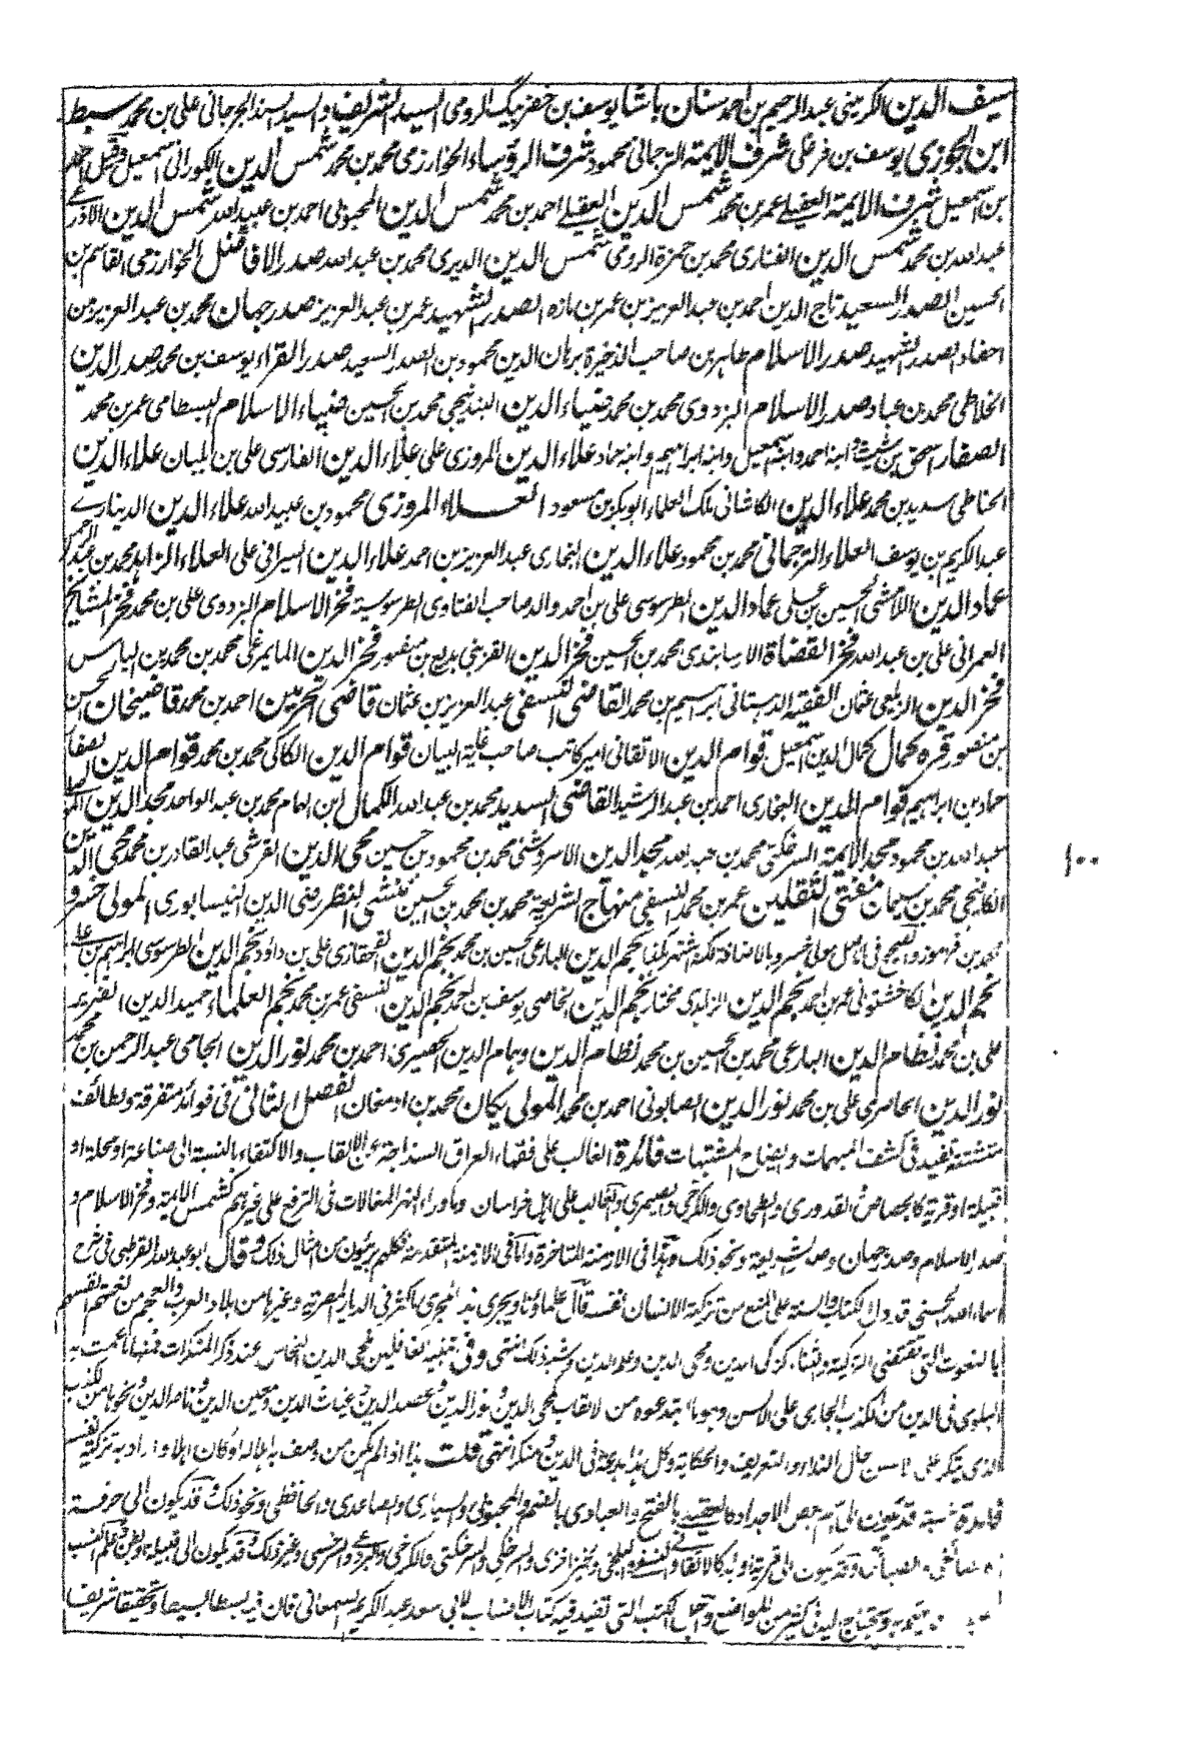 سيف الدين الكرميني عبد الرحيم بن احمد سنان باشا يوسف بن خضر بيگ الرومى السيد الشريف والسيد السند الجرجانى على بن محمد سبط
ابن الجوزى يوسف بن فرغلى شرف الايمة الترجمانى محمود شرف الرؤساء الخوارزمى محمد بن محمد شمس الدين الكورانى اسمعيل
بن اسمعيل شرف الايمة العقيلے عمر بن محمد شمس الدين العقيلے احمد بن محمد شمس الدين المحبوبى احمد بن عبيد الله شمس الدين الاذرعے
عبد الله بن محمد شمس الدين الفنارى محمد بن حمزة الرومى شمس الدين الديرى محمد بن عبد الله صدر الافاضل الخوارزمى القاسم بن
الحسين الصدر السعيد تاج الدين احمد بن عبد العزيز بن عمر بن مازه الصدر الشهيد عمر بن عبد العزيز صدر جهان محمد بن عبد العزيز من
احفاد الصدر الشهيد صدر الاسلام طاهر بن صاحب الذخيرة برهان الدين محمود بن الصدر السعيد صدر القراء يوسف بن محمد صدر الدين
الخلاطى محمد بن عباد صدر الاسلام البزدوى محمد بن محمد ضياء الدين البندنيجى محمد بن الحسين ضياء الاسلام البسطامى عمر بن محمد
الصفار اسحق بن شيث ابنه احمد وابنه اسمعيل وابنه ابراهيم وابنه حماد علاء الدين المروزى على علاء الدين الفارسى على بن بلبان علاء الدين
الحناطى سديد بن محمد علاء الدين الكاشانى ملك العلماء ابو بكر بن مسعود العلاء المروزى محمود بن عبيد الله علاء الدين الدينارے
عبد الكريم بن يوسف العلاء الترجمانى محمد بن محمود علاء الدين البخارى عبد العزيز بن احمد علاء الدين السيرافى على العلاء الزاهد محمد بن عبد الرحمن
عماد الدين اللامشى الحسين بن على عماد الدين الطرسوسى على بن احمد والد صاحب الفتاوى الطرسوسية فخر الاسلام البزدوى على بن محمد فخر المشايخ
العمرانى على بن عبد الله فخر القضاة الارسابندى محمد بن الحسين فخر الدين القزبنى بديع بن منصور فخر الدين المايمرغى محمد بن محمد بن الياس
فخر الدين الزيلعى عثمان الفقيه الدهستانى ابراهيم بن محمد القاضى النسفى عبد العزيز بن عثمان قاضى الحرمين احمد بن محمد قاضيخان الحسن
بن منصور قره كمال كمال الدين اسمعيل قوام الدين الاتقانى امير كاتب صاحب غاية البيان قوام الدين الكاكى محمد بن محمد قوام الدين الصفار
حماد بن ابراهيم قوام الدين البخارى احمد بن عبد الرشيد القاضى السديد محمد بن عبد الله الكمال ابن الهمام محمد بن عبد الواحد مجد الدين
عبد الله بن محمود مجد الايمة السرخكتى محمد بن عبد الله مجد الدين الاسروشنى محمد بن محمود بن حسين محى الدين القرشى عبد القادر بن محمد محى الدين
الكافيجى محمد بن سليمان مفتى الثقلين عمر بن محمد النسفى منهاج الشريعة محمد بن محمد بن الحسين منشئ النظر رضى الدين النيسابورى المولى خسرو
محمد بن فرموز والصحيح فى الاصل مولى خسرو بالاضافة لكنه اشتهر كذا نجم الدين البارعى الحسين بن محمد نجم الدين القحقازى على بن داود نجم الدين الطرسوسى ابراهيم بن على
نجم الدين الكاخشتوانى عمر بن احمد نجم الدين الزاهدى مختار نجم الدين الخاصى يوسف بن احمد نجم الدين النسفى عمر بن محمد نجم العلماء حميد الدين الضرير
على بن محمد نظام الدين البارعى محمد بن الحسين بن محمد نظام الدين وهمام الدين الحصيرى احمد بن محمد نور الدين الجامى عبد الرحمن بن محمد
نور الدين الحاصرى على بن محمد نور الدين الصابونى احمد بن محمد المولى يكان محمد بن ارمغان الفصل الثانى فى فوائد متفرقة ولطائف
متشتتة تفيد فى كشف المبهمات وايضاح المشتبهات فائدة الغالب على فقهاء العراق السذاجة عن الالقاب والاكتفاء بالنسبة الى صناعة او محلة او
قبيلة او قرية كالجصاص والقدورى والطحاوى والكرخى والصيمرى والغالب على اهل خراسان وماوراء النهر المغالات فى الترفع على غيرهم كشمس الايمة وفخر الاسلام و
صدر الاسلام وصدر جهان وصدر الشريعة ونحو ذلك وهذا فى الازمنة المتاخرة واما فى الازمنة المتقدمة فكلهم بريئون من امثال ذلك وقال ابو عبد الله القرطبى فى شرح
اسماء الله الحسنى قد دل الكتاب والسنة على المنع من تزكية الانسان نفسه قال علماؤنا ويجرى هذا المجرى ما كثر فى الديار المصرية وغيرها من بلاد العرب والعجم من نعتهم انفسهم
بالنعوت التى تقتضى التزكية والثناء كزكى الدين ومحى الدين وعلم الدين وشبه ذلك انتهى وفى تنبيه الغافلين لمحى الدين النحاس عند ذكر المنكرات فمنها ما عمت به
البلوى فى الدين من الكذب الجارى على الالسن وهو ما ابتدعوه من الالقاب كمحى الدين ونور الدين وعضد الدين وغياث الدين ومعين الدين وناصر الدين ونحوها من الكذب
الذى يتكرر على الالسن حال النداء والتعريف والحكاية وكل هذا بدعة فى الدين ومنكر انتهى قلت هذا اذا لم يكن من وصف به اهلا له او كان اهلا واراد به تزكية نفسه
فائدة نسبة قد تكون الى اسم بعض الاجداد كالعقيلے بالفتح والعبادى بالضم والمحبوبى والسيارى والصاعدى والحافظى ونحو ذلك وقد يكون الى حرفة